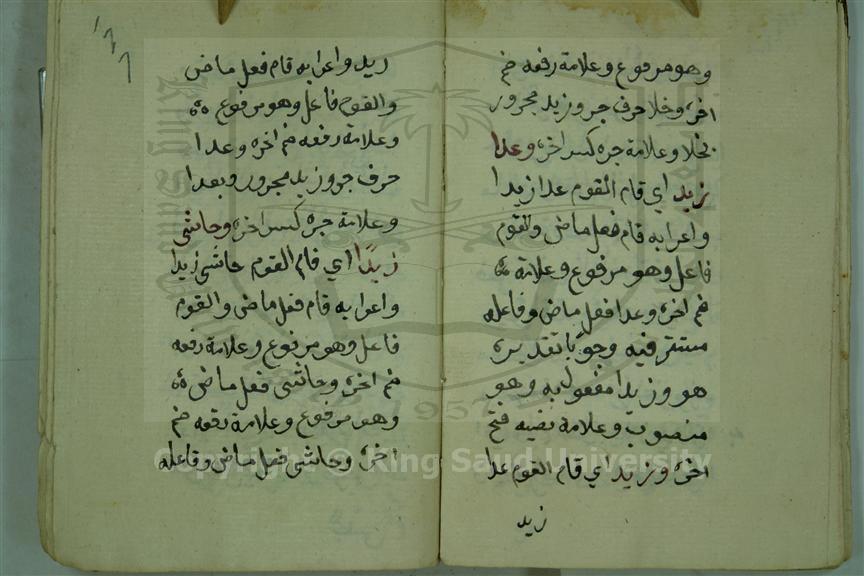 وهو مرفوع وعلامة رفعه ضم
اخره وخلا حرف جر وزيد مجرور
بخلا وعلامة جره كسر اخره وعدا
زيد اي قام القوم عدا زيدا
واعرابه قام فعل ماض والقوم
فاعل وهو مرفوع وعلامة
ضم اخره وعدا فعل ماض وفاعله
مستتر فيه وجوبا تقديره
هو وزيدا مفعول به وهو
منصوب وعلامة نصبه فتح
اخره وزيد اي قام القوم عدا
زيد
زيد واعرابه قام فعل ماض
والقوم فاعل وهو مرفوع
وعلامة رفعه ضم اخره وعدا
حرف جر وزيد مجرور وبعدا
وعلامة جره كسر اخره وحاشى
زيدًا اي قام القوم حاشى زيدا
واعرابه قام فعل ماض والقوم
فاعل وهو مرفوع وعلامة رفعه
ضم اخره وحاشى فعل ماض
وهو مرفوع وعلامة رفعه ضم
اخره وحاشى فعل ماض وفاعله
Copyright © King Saud University
1957